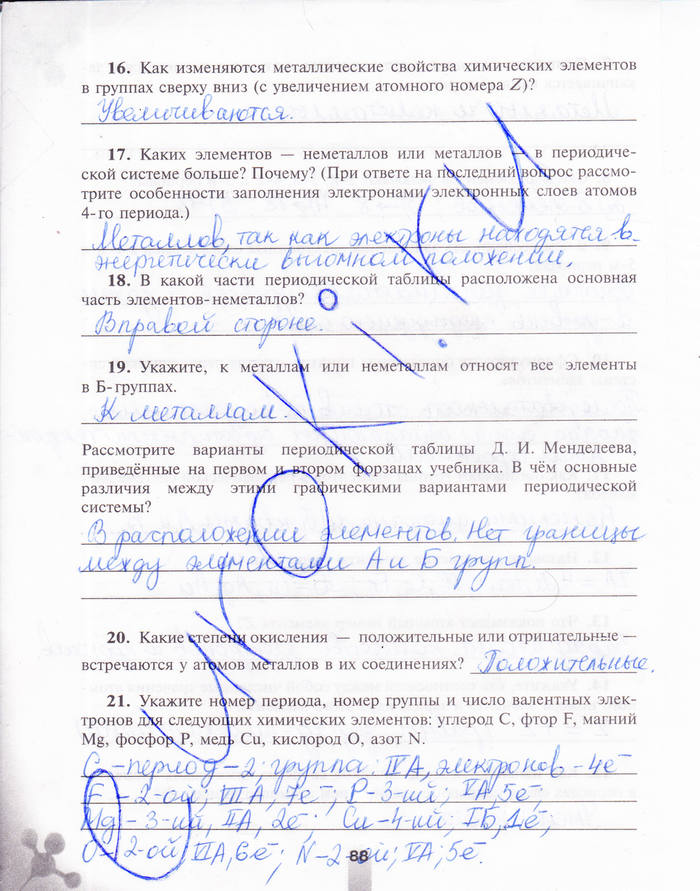 16. Как изменяются металлические свойства химических элементов
в группах сверху вниз (с увеличением атомного номера Z)?
Увеличиваются.
17. Каких элементов — неметаллов или металлов — в периодиче-
ской системе больше? Почему? (При ответе на последний вопрос рассмо-
трите особенности заполнения электронами электронных слоев атомов
4-го периода.)
Металлов, так как электроны находятся в
энергетически выгомном положении.
18. В какой части периодической таблицы расположена основная
часть элементов-неметаллов?
В правой стороне.
19. Укажите, к металлам или неметаллам относят все элементы
в Б-группах.
К металлам.
Рассмотрите варианты периодической таблицы Д. И. Менделеева,
приведённые на первом и втором форзацах учебника. В чём основные
различия между этими графическими вариантами периодической
системы?
В расположении элементов. Нет границы
между элементами А и Б групп.
20. Какие степени окисления — положительные или отрицательные —
встречаются у атомов металлов в их соединениях? Положительные.
21. Укажите номер периода, номер группы и число валентных элек-
тронов для следующих химических элементов: углерод C, фтор F, магний
Mg, фосфор P, медь Cu, кислород O, азот N.
C - период - 2; группа: IVA, электронов - 4e⁻
F - 2-ой; VIIA, 7e⁻; P - 3-ий; VA, 5e⁻;
Mg - 3-ий, IIA, 2e⁻; Cu - 4-ий; IБ, 1e⁻;
O - 2-ой; VIA, 6e⁻; N - 2-ой; VA; 5e⁻.
88
UROKI.RU